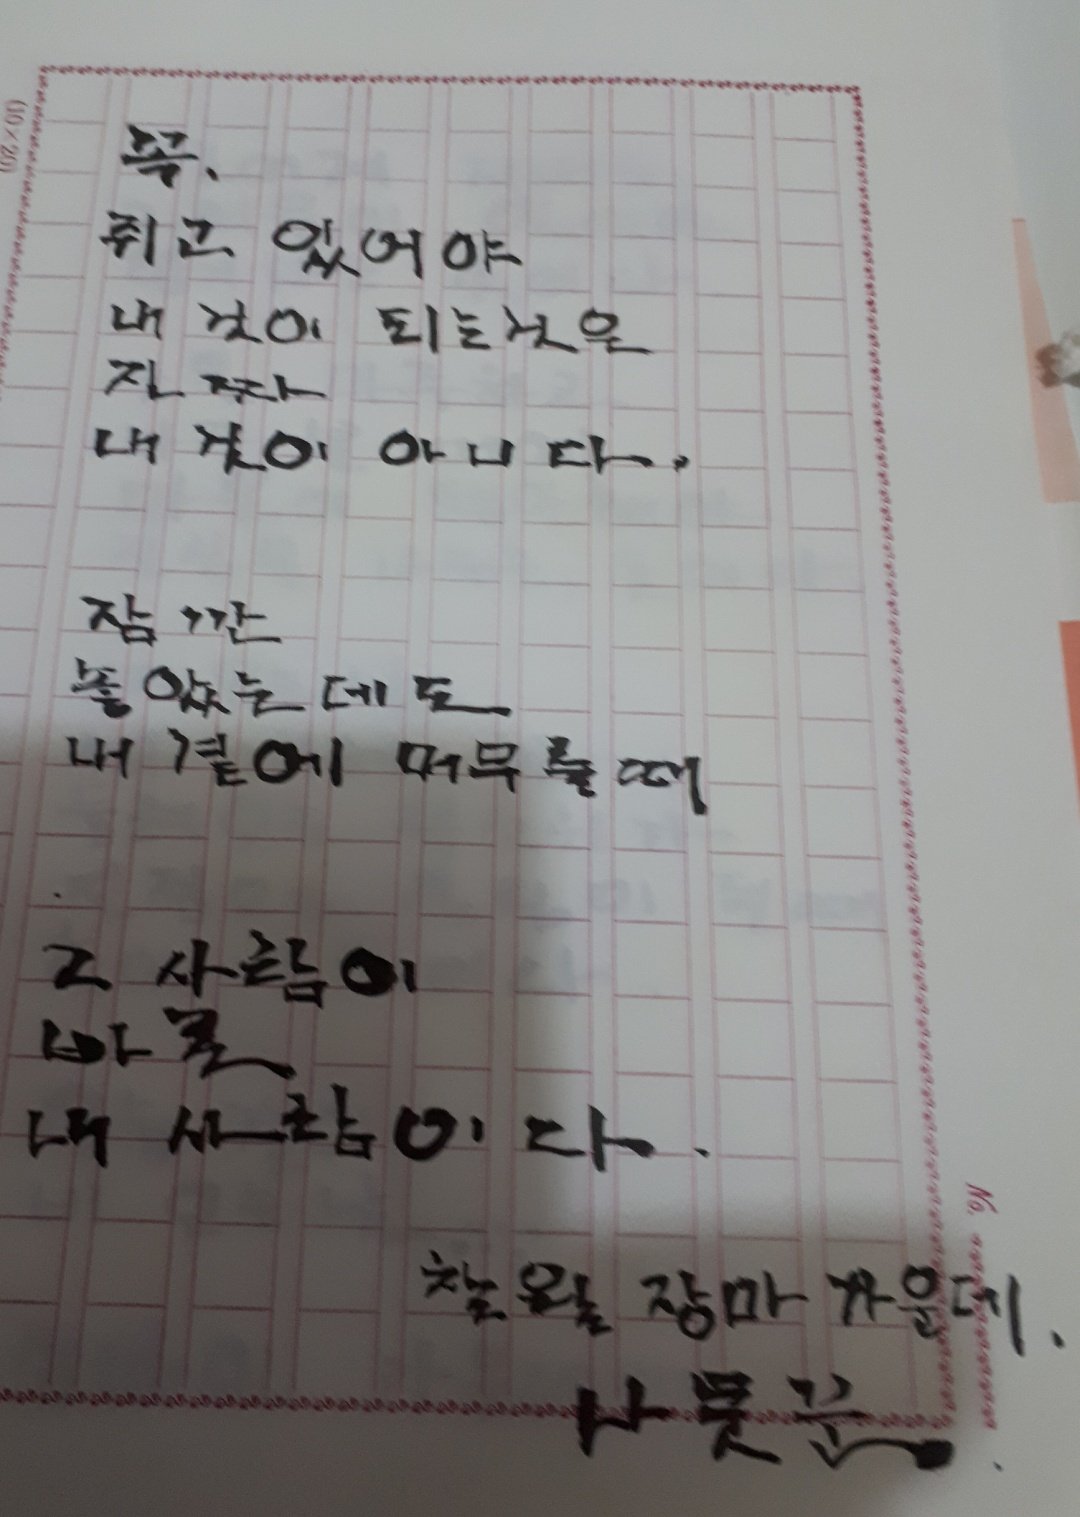 (10×20)
꼭.
쥐고 있어야
내 것이 되는것은
진짜
내 것이 아니다.
잠깐
놓았는데도
내 곁에 머무를때
그 사람이
바로
내 사람이다.
No.
칠월 장마 가운데.
나뭇꾼